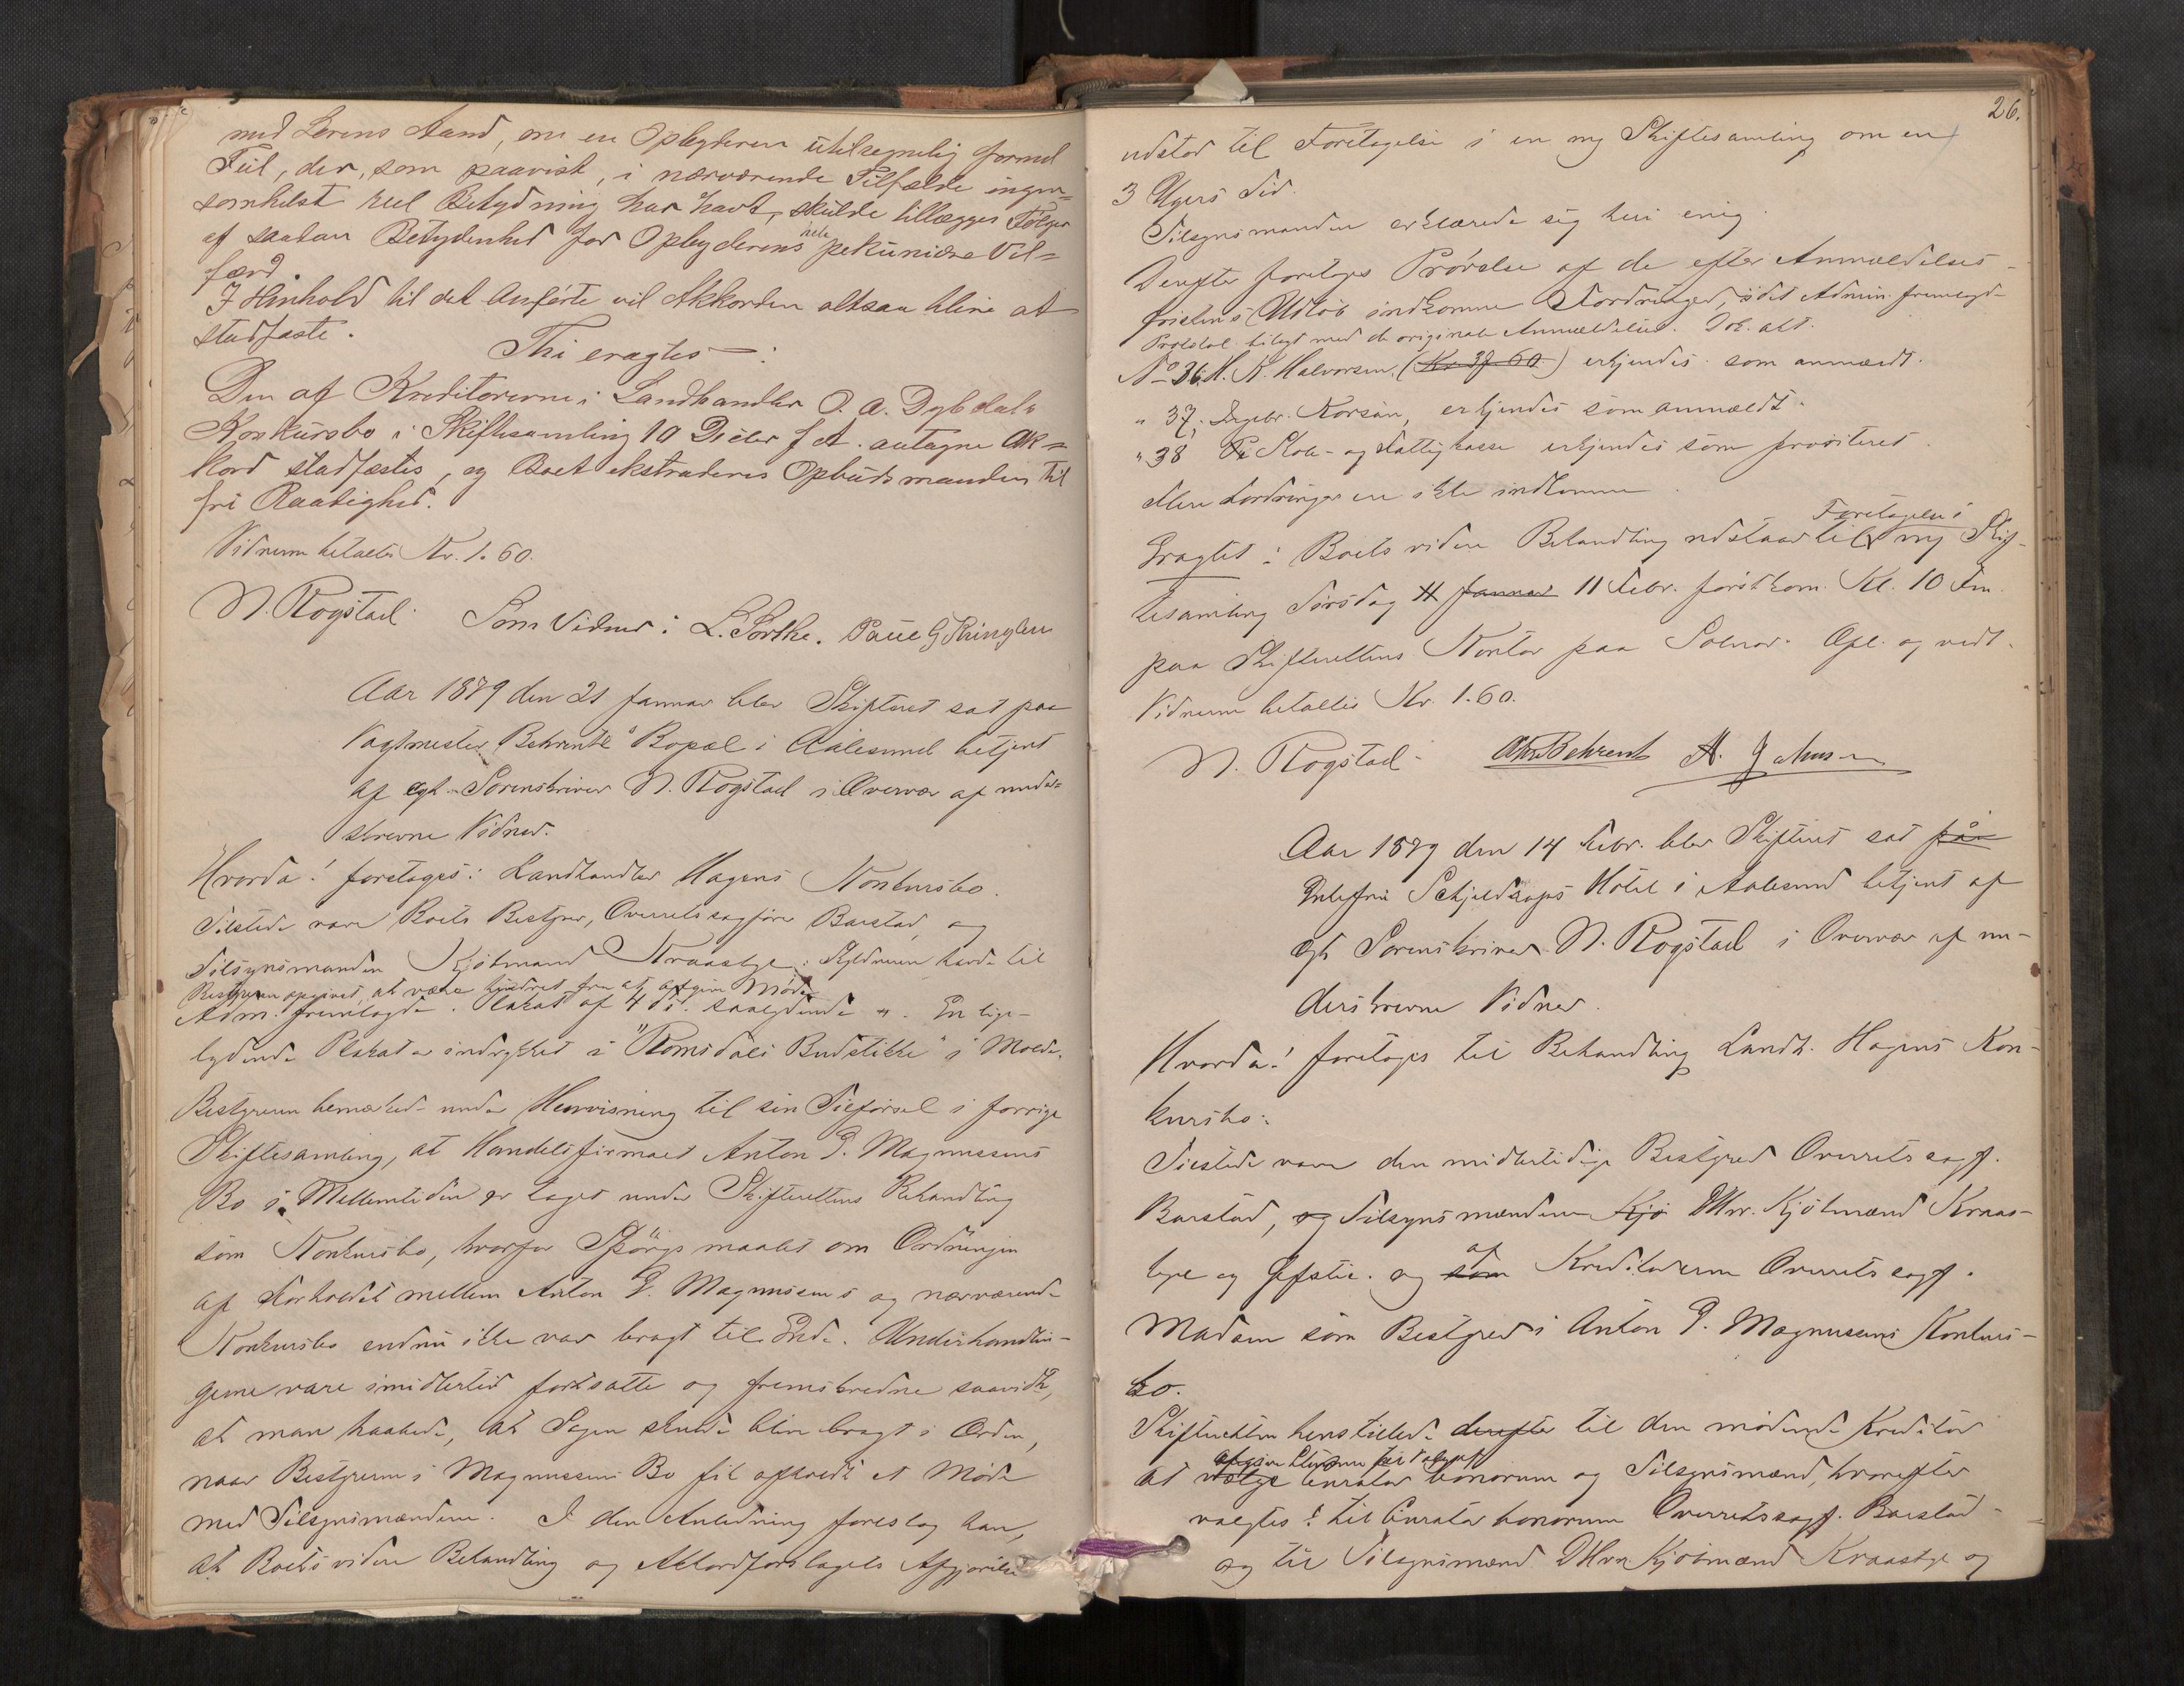 med Lovens Aand, om en Opbyderen utilregnelig formel
Feil, der, som paavist, i nærværende Tilfælde ingen=
somhelst reel Betydning har havt, skulde tillægges Følger
af saadan Betydenhed for Opbyderens hele pekuniære Vel=
færd.
I Henhold til det Anførte vil Akkorden altsaa blive at
stadfæste.
Thi eragtes:
Den af Kreditorerne i Landhandler O. A. Dybdals
Konkursbo i Skiftesamling 19 Decbr f A. antagne Ak=
kord stadfæstes, og Boet ekstraderes Opbudsmanden til
fri Raadighed.
Vidnerne betaltes Kr. 1.60.
N. Rogstad. Som Vidner: L. Sørlke. Paul G Ringlen
Aar 1879 den 21 Januar blev Skifteret sat paa
Vagtmester Behrentz' Bopæl i Aalesund betjent
af cst. Sorenskriver N. Rogstad i Overvær af under=
skrevne Vidner.
Hvorda! foretoges: Landhandler Hagens Konkursbo.
Tilstede vare Boets Bestyrer, Overretssagfører Barstad, og
Tilsynsmanden Kjøbmand Kraastye. Skyldneren havde til
Bestyreren opgivet, at være hindret fra at afgive Møde.
Adm. fremlagde Plakat af 4 ds. saalydende ". En lige-
lydende Plakat er indrykket i "Romsdals Budstikke" i Molde.
Bestyreren bemærkede under Henvisning til sin Tilførsel i forrige
Skiftesamling, at Handelsfirmaet Anton P. Magnussens
Bo i Mellemtiden er taget under Skifterettens Behandling
som Konkursbo, hvorfor Spørgsmaalet om Ordningen
af Forholdet mellem Anton P. Magnussens og nærværende
Konkursbo endnu ikke var bragt til Ende. Underhandlin-
gerne vare imidlertid fortsatte og fremskredne saavidt,
at man haabede, at Sagen skulde blive bragt i Orden,
naar Bestyreren i Magnussens Bo fik afholdt et Møde
med Tilsynsmændene. I den Anledning foreslog han,
at Boets videre Behandling og Akkordforslagets Afgjørelse
26.
udstod til Foretagelse i en ny Skiftesamling om en
3 Ugers Tid.
Tilsynsmanden erklærede sig heri enig.
Derefter foretoges Prøvelse af de efter Anmældelses-
fristens Udløb indkomne Fordringer, idet Admin. fremlagde
Protokol tilligt med de originale Anmældelser. Dok. alt.
No 36. H. K. Halvorsen. (Kr 37.60.) erkjendes som anmældt.
" 37. Ingebr. Korsøn, erkjendes som anmældt.
" 38 Skole- og Fattigkasse erkjendes som prioriteret.
Flere Fordringer ere ikke indkomne.
Eragtet: Boets videre Behandling udstaar til Foretagelse i ny Skif-
tesamling Torsdag 11 Januar 11 Febr. førstkom. Kl. 10 Fm.
paa Skifterettens Kontor paa Solnør. Opl. og vedt.
Vidnerne betaltes Kr. 1.60.
N. Rogstad. Behrentz A. Johnsen
Aar 1879 den 14 Febr. blev Skifteret sat paa
Enkefru Schjeldrops Hotel i Aalesund betjent af
cst. Sorenskriver N. Rogstad i Overvær af un-
derskrevne Vidner.
Hvorda! foretoges til Behandling Landh. Hagens Kon-
kursbo:
Tilstede vare den midlertidige Bestyrer Overretssagf.
Barstad, og Tilsynsmændene Kjø DHrr. Kjøbmænd Kraas-
tye og og som af Kreditorerne Overretssagf.
Madsen som Bestyrer i Anton P. Magnussens Konkurs-
bo.
Skifteretten henstillede derefter til den mødende Kreditor
at vælge afgive Stemme før Valg af Curator bonorum og Tilsynsmænd, hvorefter
valgtes: til Curator bonorum Overretssagf. Barstad
og til Tilsynsmænd DHrr. Kjøbmænd Kraastye og